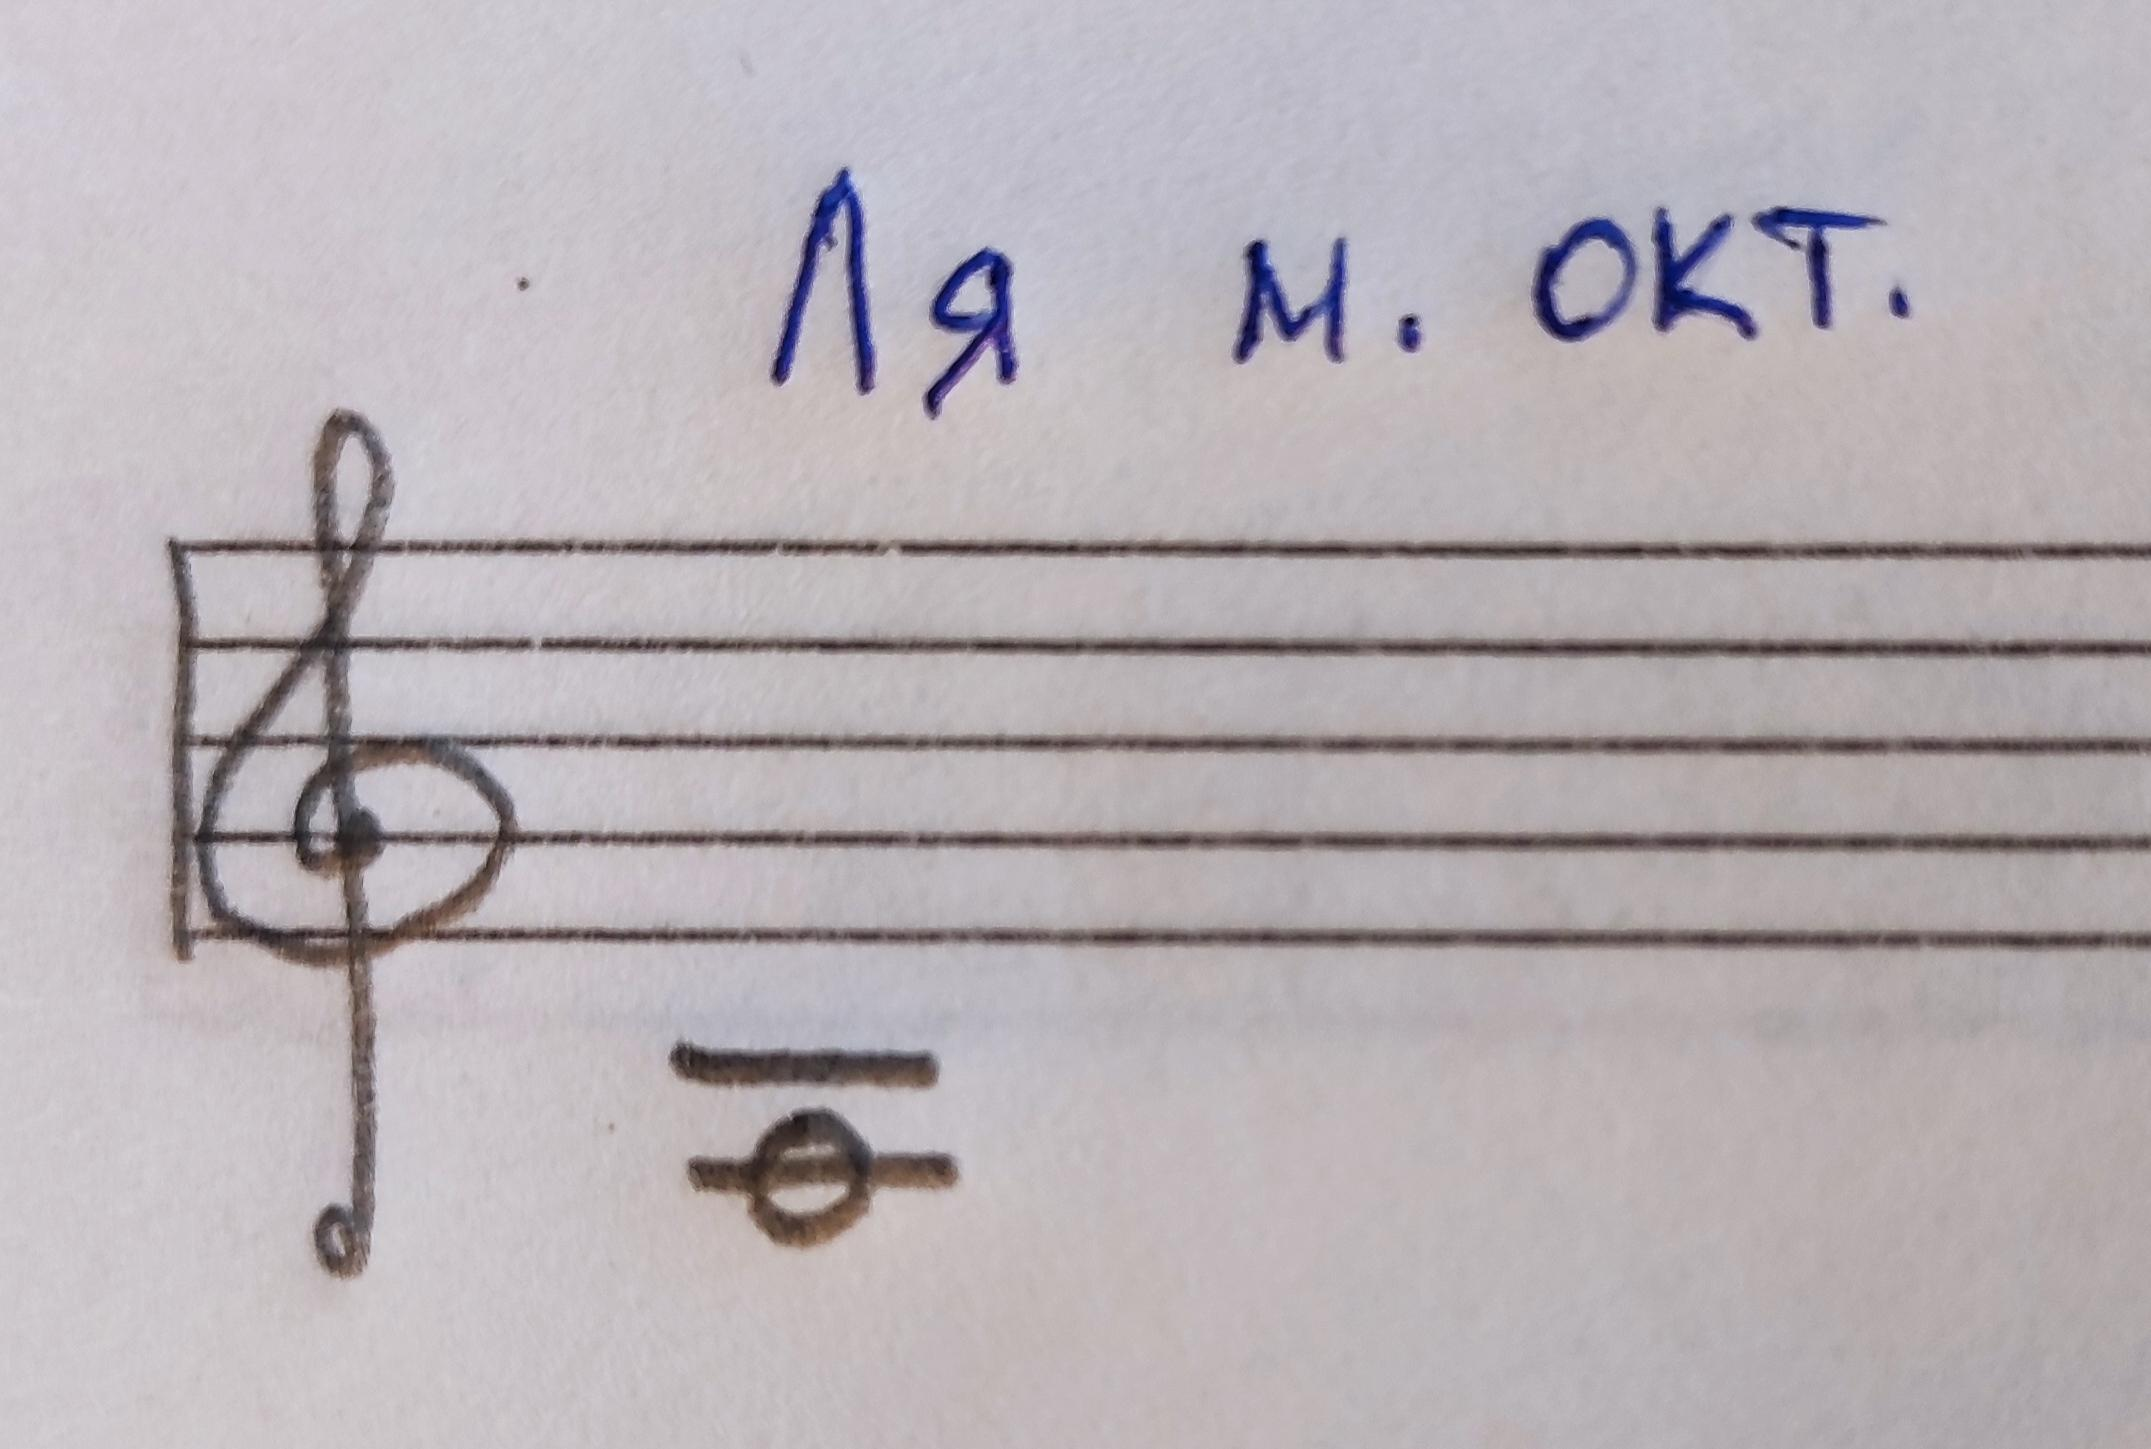 Ля м. окт.